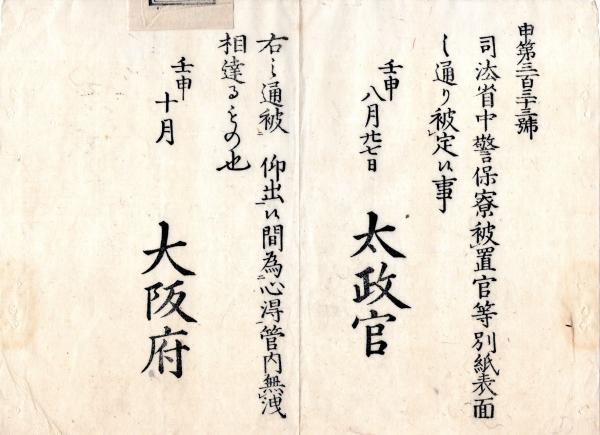 申第三百三十三號
司法省中警保寮被置官等別紙表面
之通リ被定候事
壬申
八月廿七日
太政官
右之通被 仰出候間為心得管内無洩
相達るもの也
壬申
十月
大阪府